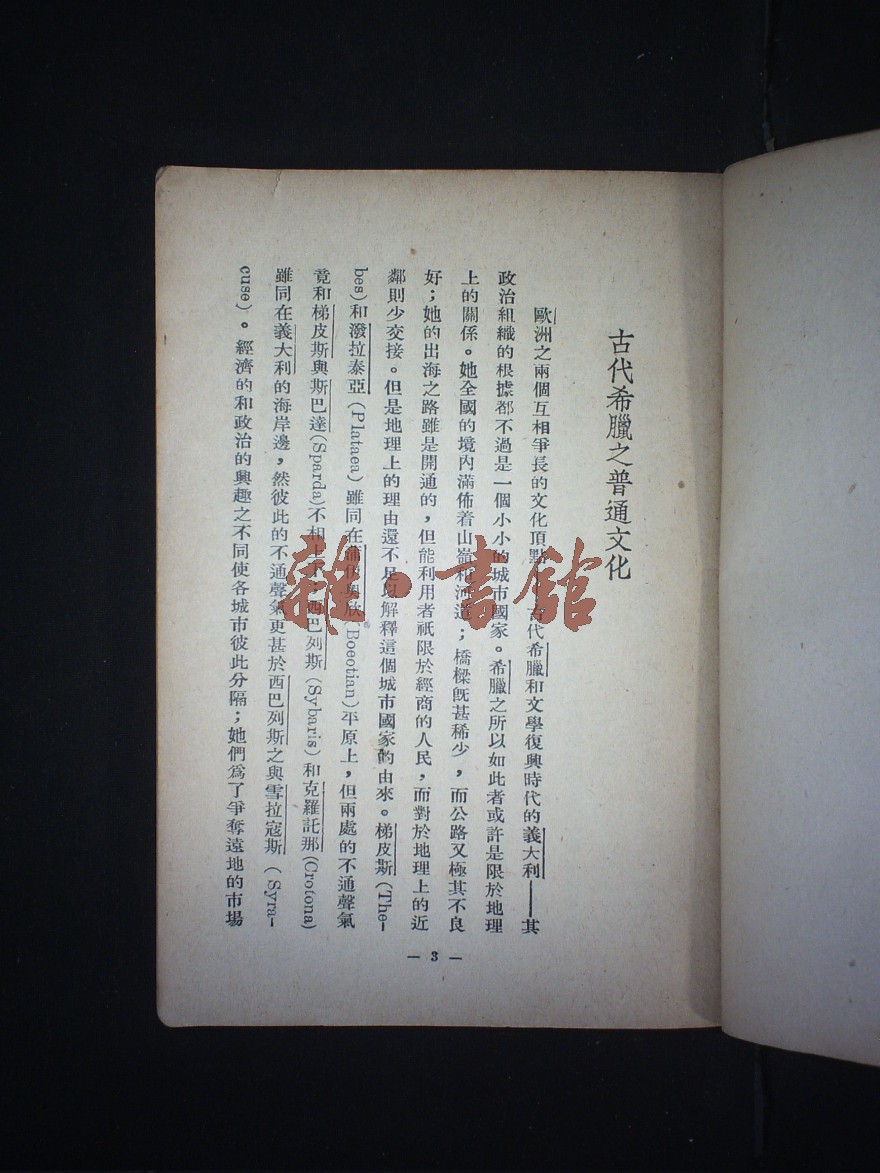 古代希臘之普通文化
歐洲之兩個互相爭長的文化頂點 古代希臘和文學復興時代的義大利——其
政治組織的根據都不過是一個小小的城市國家。希臘之所以如此者或許是限於地理
上的關係。她全國的境內滿佈着山嶺和河道；橋樑旣甚稀少，而公路又極其不良
好；她的出海之路雖是開通的，但能利用者祇限於經商的人民，而對於地理上的近
鄰則少交接。但是地理上的理由還不足以解釋這個城市國家的由來。梯皮斯(The-
bes)和潑拉泰亞(Plataea)雖同在 (Boeotian)平原上，但兩處的不通聲氣
竟和梯皮斯與斯巴達(Sparda)不相上下 西巴列斯(Sybaris)和克羅託那(Crotona)
雖同在義大利的海岸邊，然彼此的不通聲氣更甚於西巴列斯之與雪拉寇斯(Syra-
cuse)。經濟的和政治的興趣之不同使各城市彼此分隔；她們爲了爭奪遠地的市場
— 3 —
雜·書館